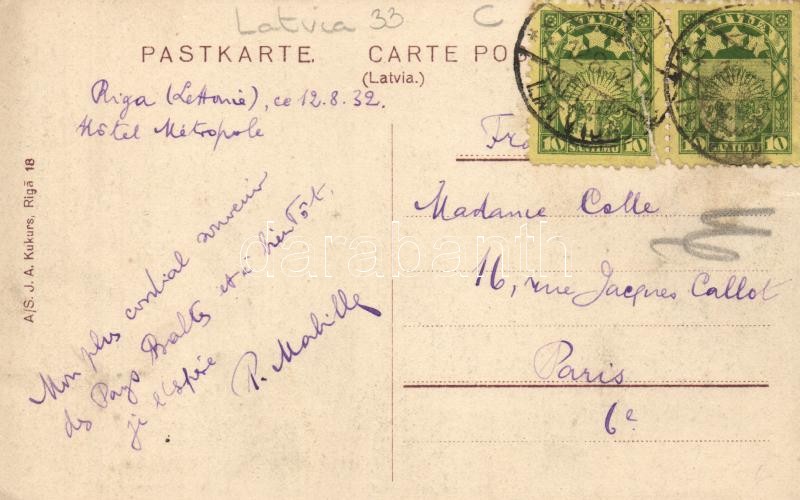 Latvia 33 C
PASTKARTE. CARTE POS
(Latvia.)
LATVIJA LATVIJA
10 SANTIMU 10 10 SANTIMU 10
LATVIJA
Riga (Lettonie), ce 12.8.32.
Hôtel Métropole
Mon plus cordial souvenir
des Pays Baltes et à bientôt.
je l'espère
P. Mabille
Fra
Madame Colle
16, rue Jacques Callot
Paris
6e
A/S. J. A. Kukurs, Rīgā 18
darabanth